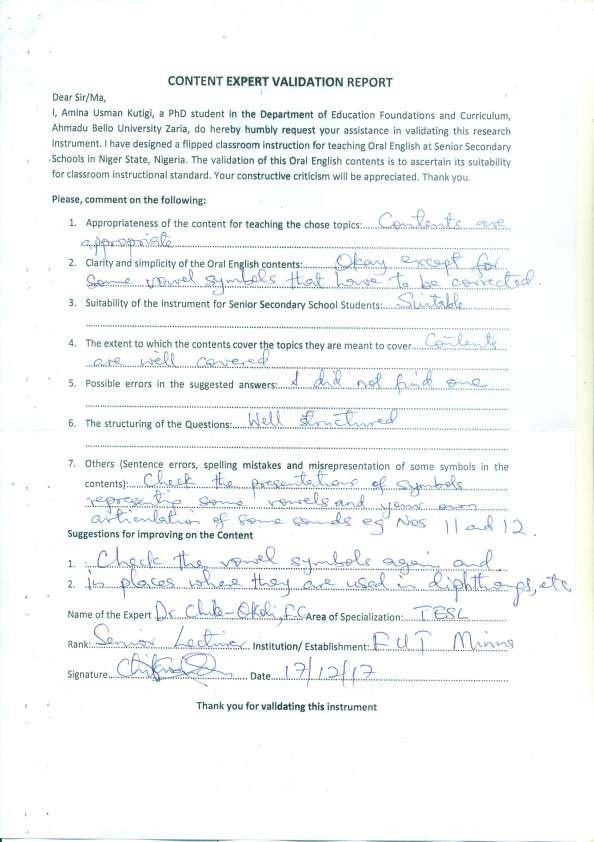 CONTENT EXPERT VALIDATION REPORT
Dear Sir/Ma,
I, Amina Usman Kutigi, a PhD student in the Department of Education Foundations and Curriculum,
Ahmadu Bello University Zaria, do hereby humbly request your assistance in validating this research
instrument. I have designed a flipped classroom instruction for teaching Oral English at Senior Secondary
Schools in Niger State, Nigeria. The validation of this Oral English contents is to ascertain its suitability
for classroom instructional standard. Your constructive criticism will be appreciated. Thank you.
Please, comment on the following:
1. Appropriateness of the content for teaching the chose topics: Contents are
appropriate
2. Clarity and simplicity of the Oral English contents: Okay except for
some vowel symbols that have to be corrected.
3. Suitability of the instrument for Senior Secondary School Students: Suitable
4. The extent to which the contents cover the topics they are meant to cover Contents
are well covered
5. Possible errors in the suggested answers: I did not find one
6. The structuring of the Questions: Well structured
7. Others (Sentence errors, spelling mistakes and misrepresentation of some symbols in the
contents): Check the presentations of symbols
some vowels and your own
articulation of some sounds eg Nos 11 and 12.
Suggestions for improving on the Content
1. Check the vowel symbols again and
2. in places where they are used in diphthongs, etc
Name of the Expert Dr. F.C Area of Specialization: TESL
Rank: Senior Lecturer Institution/ Establishment: FUT Minna
Signature Date 17/12/17
Thank you for validating this instrument